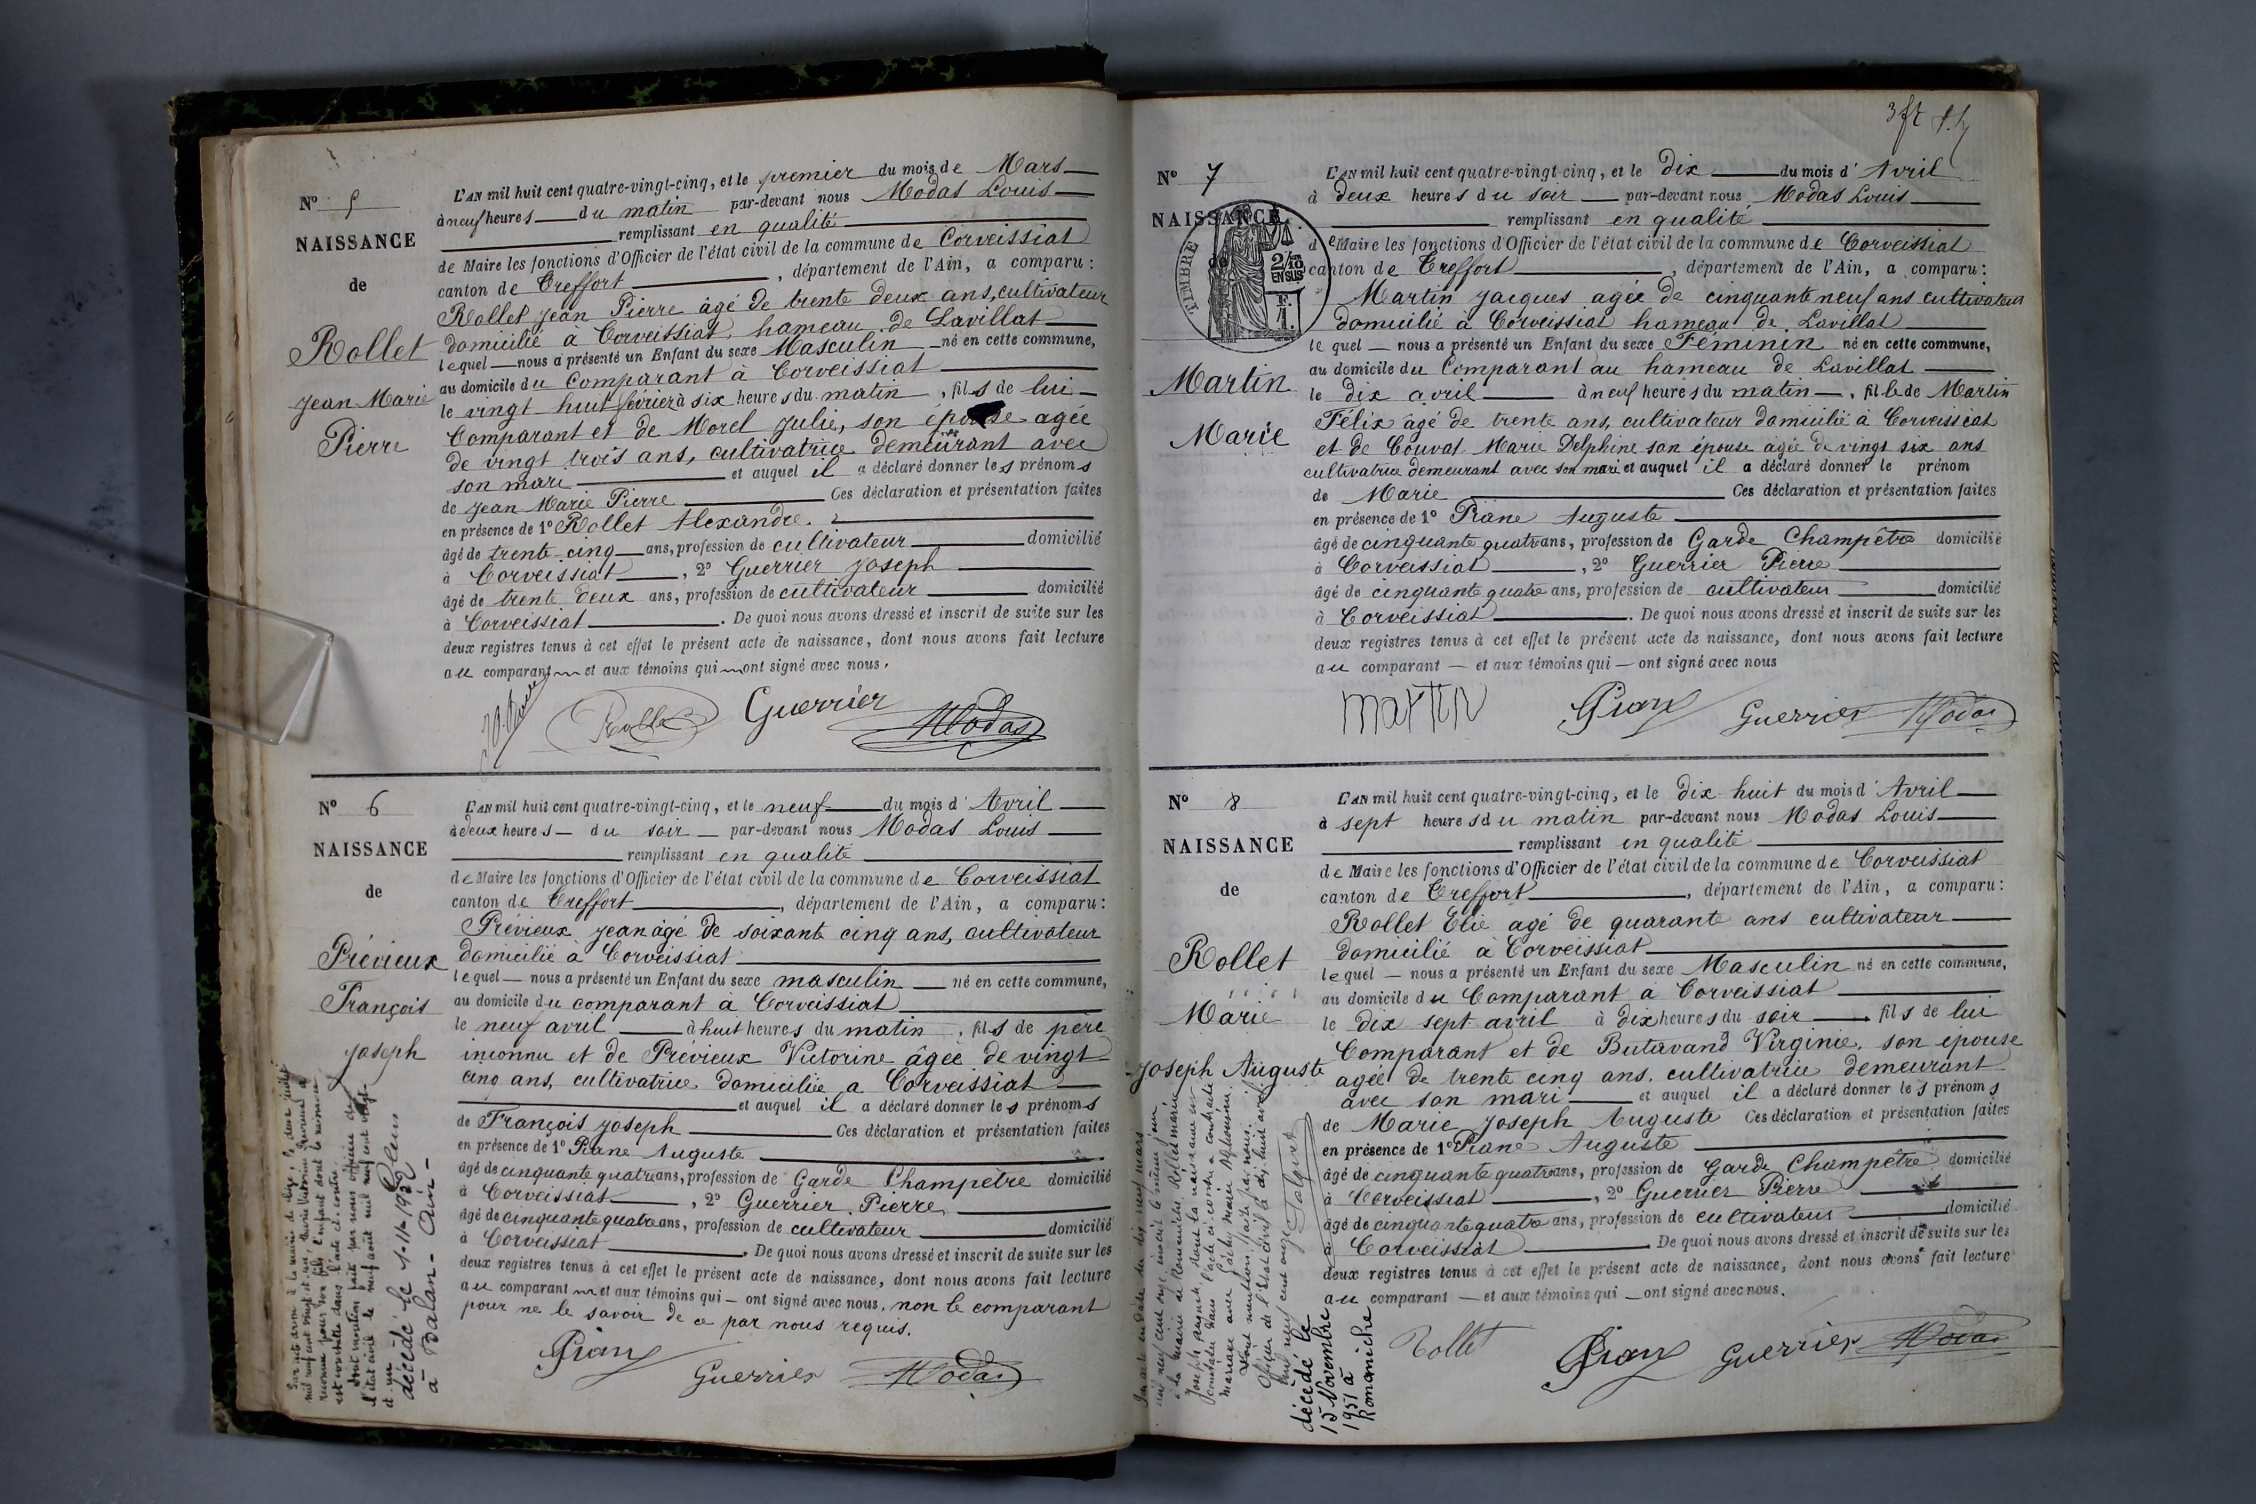 Nº 5
NAISSANCE
de
Rollet
Jean Marie
Pierre
L'AN mil huit cent quatre-vingt-cinq, et le premier du mois de Mars
à neuf heures du matin par-devant nous Modas Louis
remplissant en qualité
de Maire les fonctions d'Officier de l'état civil de la commune de Corveissiat
canton de Treffort, département de l'Ain, a comparu :
Rollet Jean Pierre âgé de trente deux ans, cultivateur
domicilié à Corveissiat, hameau de Lavillat
lequel nous a présenté un Enfant du sexe Masculin né en cette commune,
au domicile du Comparant à Corveissiat
le vingt huit février à six heures du matin, fils de lui
Comparant et de Morel Julie, son épouse agée
de vingt trois ans, cultivatrice demeurant avec
son mari et auquel il a déclaré donner les prénoms
de Jean Marie Pierre Ces déclaration et présentation faites
en présence de 1º Rollet Alexandre.
âgé de trente cinq ans, profession de cultivateur domicilié
à Corveissiat, 2º Guerrier Joseph
âgé de trente deux ans, profession de cultivateur domicilié
à Corveissiat. De quoi nous avons dressé et inscrit de suite sur les
deux registres tenus à cet effet le présent acte de naissance, dont nous avons fait lecture
au comparant et aux témoins qui ont signé avec nous.
Guerrier
Modas
Nº 6
NAISSANCE
de
Prévieux
François
Joseph
L'AN mil huit cent quatre-vingt-cinq, et le neuf du mois d'Avril
à deux heures du soir par-devant nous Modas Louis
remplissant en qualité
de Maire les fonctions d'Officier de l'état civil de la commune de Corveissiat
canton de Treffort, département de l'Ain, a comparu :
Prévieux Jean agé de soixante cinq ans, cultivateur
domicilié à Corveissiat
lequel nous a présenté un Enfant du sexe masculin né en cette commune,
au domicile du comparant à Corveissiat
le neuf avril à huit heures du matin, fils de père
inconnu et de Prévieux Victorine âgée de vingt
cinq ans, cultivatrice domiciliée a Corveissiat
et auquel il a déclaré donner les prénoms
de François Joseph Ces déclaration et présentation faites
en présence de 1º Piane Auguste
âgé de cinquante quatre ans, profession de Garde Champêtre domicilié
à Corveissiat, 2º Guerrier Pierre
âgé de cinquante quatre ans, profession de cultivateur domicilié
à Corveissiat. De quoi nous avons dressé et inscrit de suite sur les
deux registres tenus à cet effet le présent acte de naissance, dont nous avons fait lecture
au comparant et aux témoins qui ont signé avec nous, non le comparant
pour ne le savoir de ce par nous requis.
Guerrier
Modas
décédé le 1-11-1952
à Balan - Ain -
Nº 7
NAISSANCE
de
TIMBRE
2/10
EN SUS
F.
1.
Martin
Marie
L'AN mil huit cent quatre-vingt-cinq, et le dix du mois d'Avril
à deux heures du soir par-devant nous Modas Louis
remplissant en qualité
de Maire les fonctions d'Officier de l'état civil de la commune de Corveissiat
canton de Treffort, département de l'Ain, a comparu :
Martin Jacques agée de cinquante neuf ans cultivateur
domicilié à Corveissiat hameau de Lavillat
le quel nous a présenté un Enfant du sexe Féminin né en cette commune,
au domicile du Comparant au hameau de Lavillat
le dix avril à neuf heures du matin, fille de Martin
Félix âgé de trente ans, cultivateur domicilié à Corveissiat
et de Couvat Marie Delphine son épouse âgée de vingt six ans
cultivatrice demeurant avec son mari et auquel il a déclaré donner le prénom
de Marie Ces déclaration et présentation faites
en présence de 1º Piane Auguste
âgé de cinquante quatre ans, profession de Garde Champêtre domicilié
à Corveissiat, 2º Guerrier Pierre
âgé de cinquante quatre ans, profession de cultivateur domicilié
à Corveissiat. De quoi nous avons dressé et inscrit de suite sur les
deux registres tenus à cet effet le présent acte de naissance, dont nous avons fait lecture
au comparant et aux témoins qui ont signé avec nous
martin
Guerrier
Modas
Nº 8
NAISSANCE
de
Rollet
Marie
Joseph Auguste
L'AN mil huit cent quatre-vingt-cinq, et le dix huit du mois d'Avril
à sept heures du matin par-devant nous Modas Louis
remplissant en qualité
de Maire les fonctions d'Officier de l'état civil de la commune de Corveissiat
canton de Treffort, département de l'Ain, a comparu :
Rollet Elie agé de quarante ans cultivateur
domicilié à Corveissiat
lequel nous a présenté un Enfant du sexe Masculin né en cette commune,
au domicile du Comparant à Corveissiat
le dix sept avril à dix heures du soir fils de lui
Comparant et de Butavand Virginie, son épouse
agée de trente cinq ans, cultivatrice demeurant
avec son mari et auquel il a déclaré donner les prénoms
de Marie Joseph Auguste Ces déclaration et présentation faites
en présence de 1º Piane Auguste
âgé de cinquante quatre ans, profession de Garde Champêtre domicilié
à Corveissiat, 2º Guerrier Pierre
âgé de cinquante quatre ans, profession de cultivateur domicilié
à Corveissiat De quoi nous avons dressé et inscrit de suite sur les
deux registres tenus à cet effet le présent acte de naissance, dont nous avons fait lecture
au comparant et aux témoins qui ont signé avec nous.
Rollet
Guerrier
Modas
décédé le
15 Novembre
1951 à
Romanèche